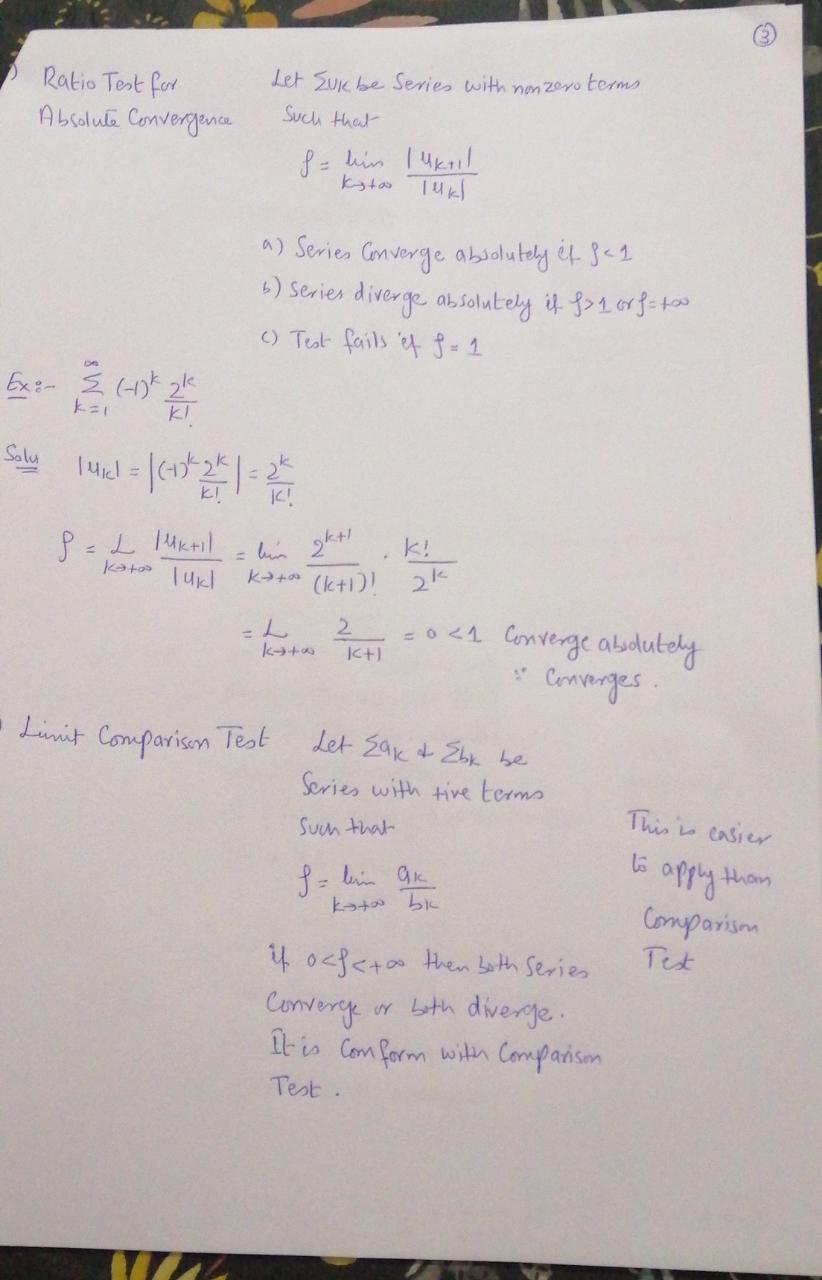 ③
) Ratio Test for Let Σuk be Series with nonzero terms
Absolute Convergence Such that
ρ = lim k→+∞ |uk+1| / |uk|
a) Series Converge absolutely if ρ<1
b) Series diverge absolutely if ρ>1 or ρ=+∞
c) Test fails if ρ = 1
Ex:- ∞ Σ k=1 (-1)^k 2^k / k!
Solu |uk| = |(-1)^k 2^k / k!| = 2^k / k!
ρ = L k→+∞ |uk+1| / |uk| = lim k→+∞ 2^k+1 / (k+1)! . k! / 2^k
= L k→+∞ 2 / k+1 = 0 <1 Converge absolutely
∵ Converges.
) Limit Comparison Test Let Σak & Σbk be
Series with +ive terms
Such that
ρ = lim k→+∞ ak / bk
if 0<ρ<+∞ then both Series
Converge or both diverge.
It is Comform with Comparison
Test.
This is easier
to apply than
Comparison
Test